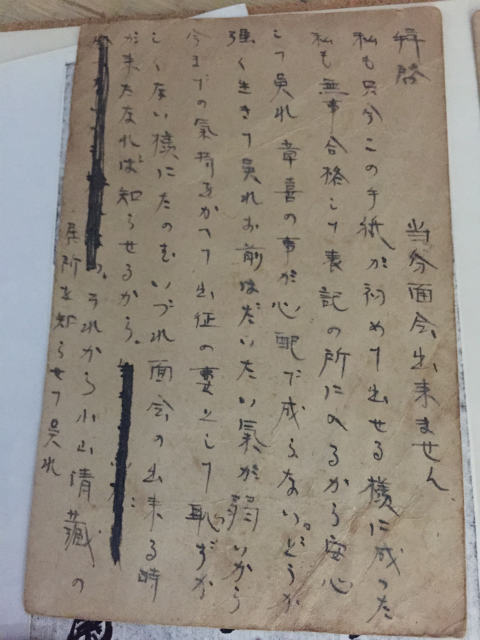 拜啓
当分面会出来ません
私も只今この手紙が初めて出せる様に成った
私も無事合格して表記の所に入るから安心
して呉れ 章喜の事が心配で成らない。どうか
強く生きて呉れお前はだいたい氣が弱いから
今までの氣持をかへて出征の妻として恥ずか
しくない様にたのむいづれ面会の出来る時
が来たなれば知らせるから。
それから小山 藏の
居所を知らせて呉れ